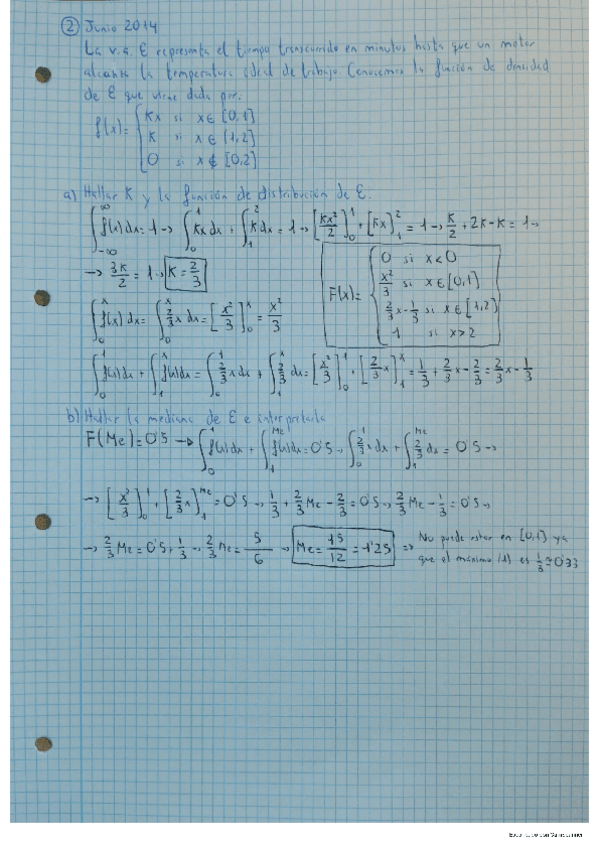 ② Junio 2014
La v.a. ξ representa el tiempo transcurrido en minutos hasta que un motor
alcanza la temperatura ideal de trabajo. Conocemos la función de densidad
de ξ que viene dada por:
f(x)= { Kx si x∈[0,1]
K si x∈(1,2]
0 si x∉[0,2]
a) Hallar K y la función de distribución de ξ.
∫_{-∞}^{∞} f(x)dx=1 → ∫_0^1 Kx dx + ∫_1^2 K dx = 1 → [Kx²/2]_0^1 + [Kx]_1^2 = 1 → K/2 + 2K-K = 1 →
→ 3K/2 = 1 → K = 2/3
F(x)= { 0 si x<0
x²/3 si x∈[0,1]
2/3x-1/3 si x∈[1,2)
1 si x>2
∫_0^x f(x)dx = ∫_0^x 2/3 x dx = [x²/3]_0^x = x²/3
∫_0^1 f(x)dx + ∫_1^x f(x)dx = ∫_0^1 2/3 x dx + ∫_1^x 2/3 dx = [x²/3]_0^1 + [2/3 x]_1^x = 1/3 + 2/3 x - 2/3 = 2/3 x - 1/3
b) Hallar la mediana de ξ e interpretarla
F(Me)=0'5 → ∫_0^1 f(x)dx + ∫_1^{Me} f(x)dx = 0'5 → ∫_0^1 2/3 x dx + ∫_1^{Me} 2/3 dx = 0'5 →
→ [x²/3]_0^1 + [2/3 x]_1^{Me} = 0'5 → 1/3 + 2/3 Me - 2/3 = 0'5 → 2/3 Me - 1/3 = 0'5 →
→ 2/3 Me = 0'5 + 1/3 → 2/3 Me = 5/6 → Me = 15/12 = 1'25 ⇒ No puede estar en [0,1] ya
que el máximo (1) es 1/3 ≈ 0'33